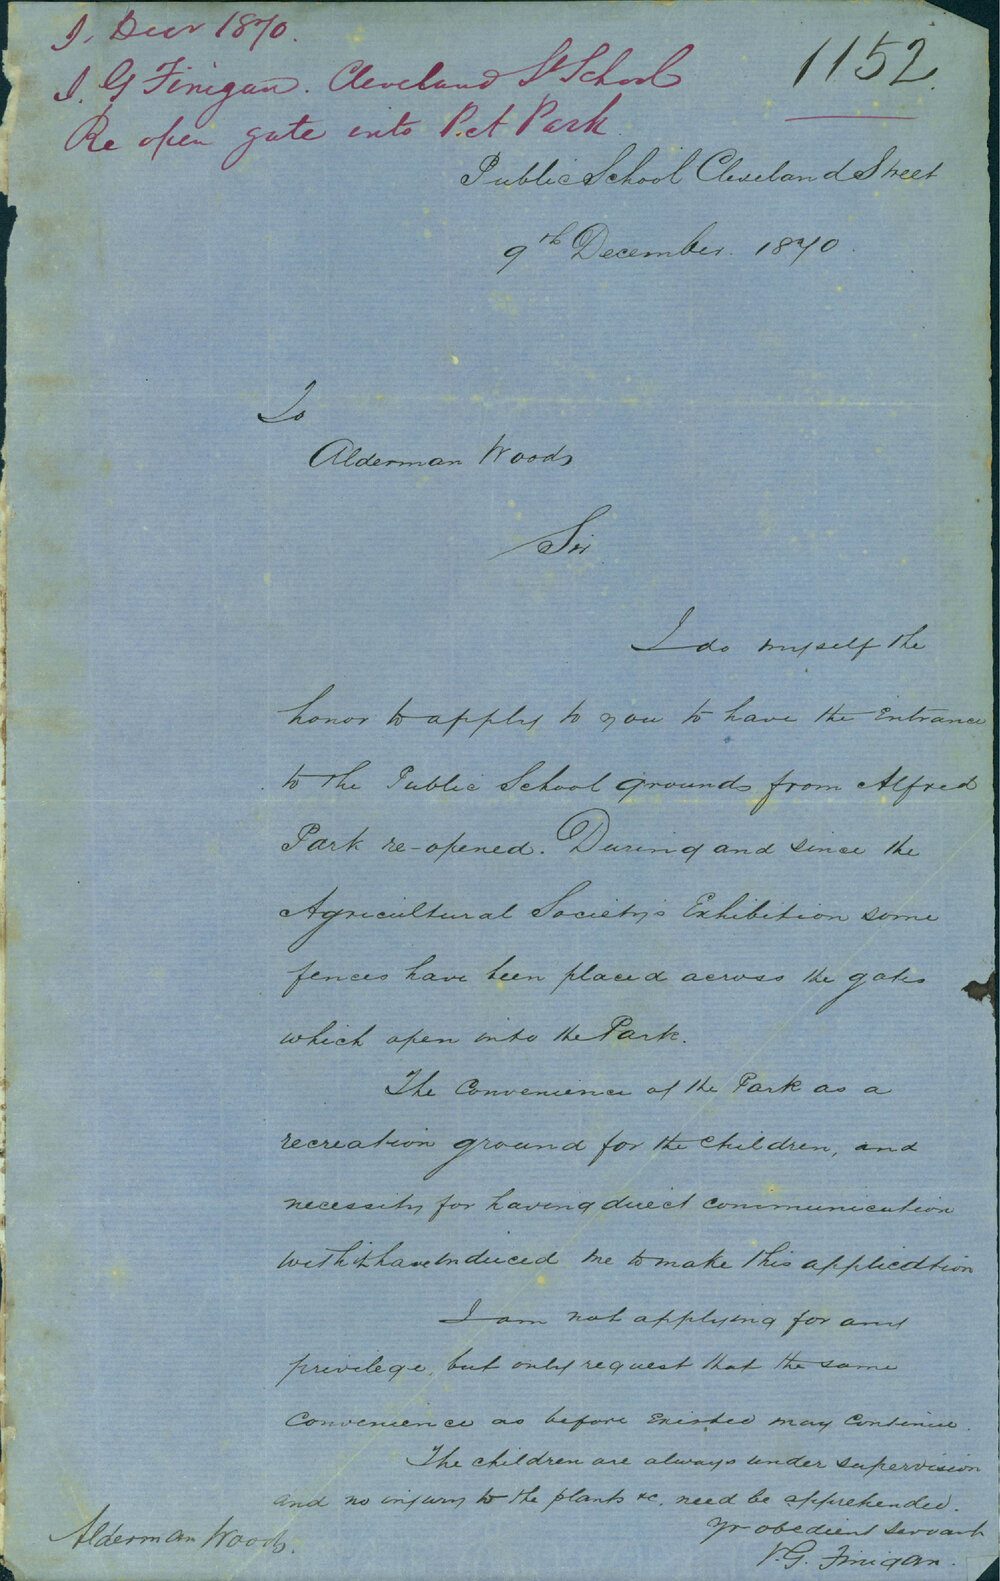 9. Decr 1870.
J. G Finigan. Cleveland St School
Re open gate into P. A Park
1152
Public School Cleveland Street
9th December. 1870.
To
Alderman Woods
Sir
I do myself the
honor to apply to you to have the Entrance
to the Public School grounds from Alfred
Park re-opened. During and since the
Agricultural Society's Exhibition some
fences have been placed across the gates
which open into the Park.
The Convenience of the Park as a
recreation ground for the children, and
necessity for having direct communication
with it have induced me to make this application
I am not applying for any
privilege, but only request that the same
Convenience as before existed may continue.
The children are always under supervision
and no injury to the plants &c. need be apprehended.
Yr obedient servant
V. G. Finigan.
Alderman Woods.